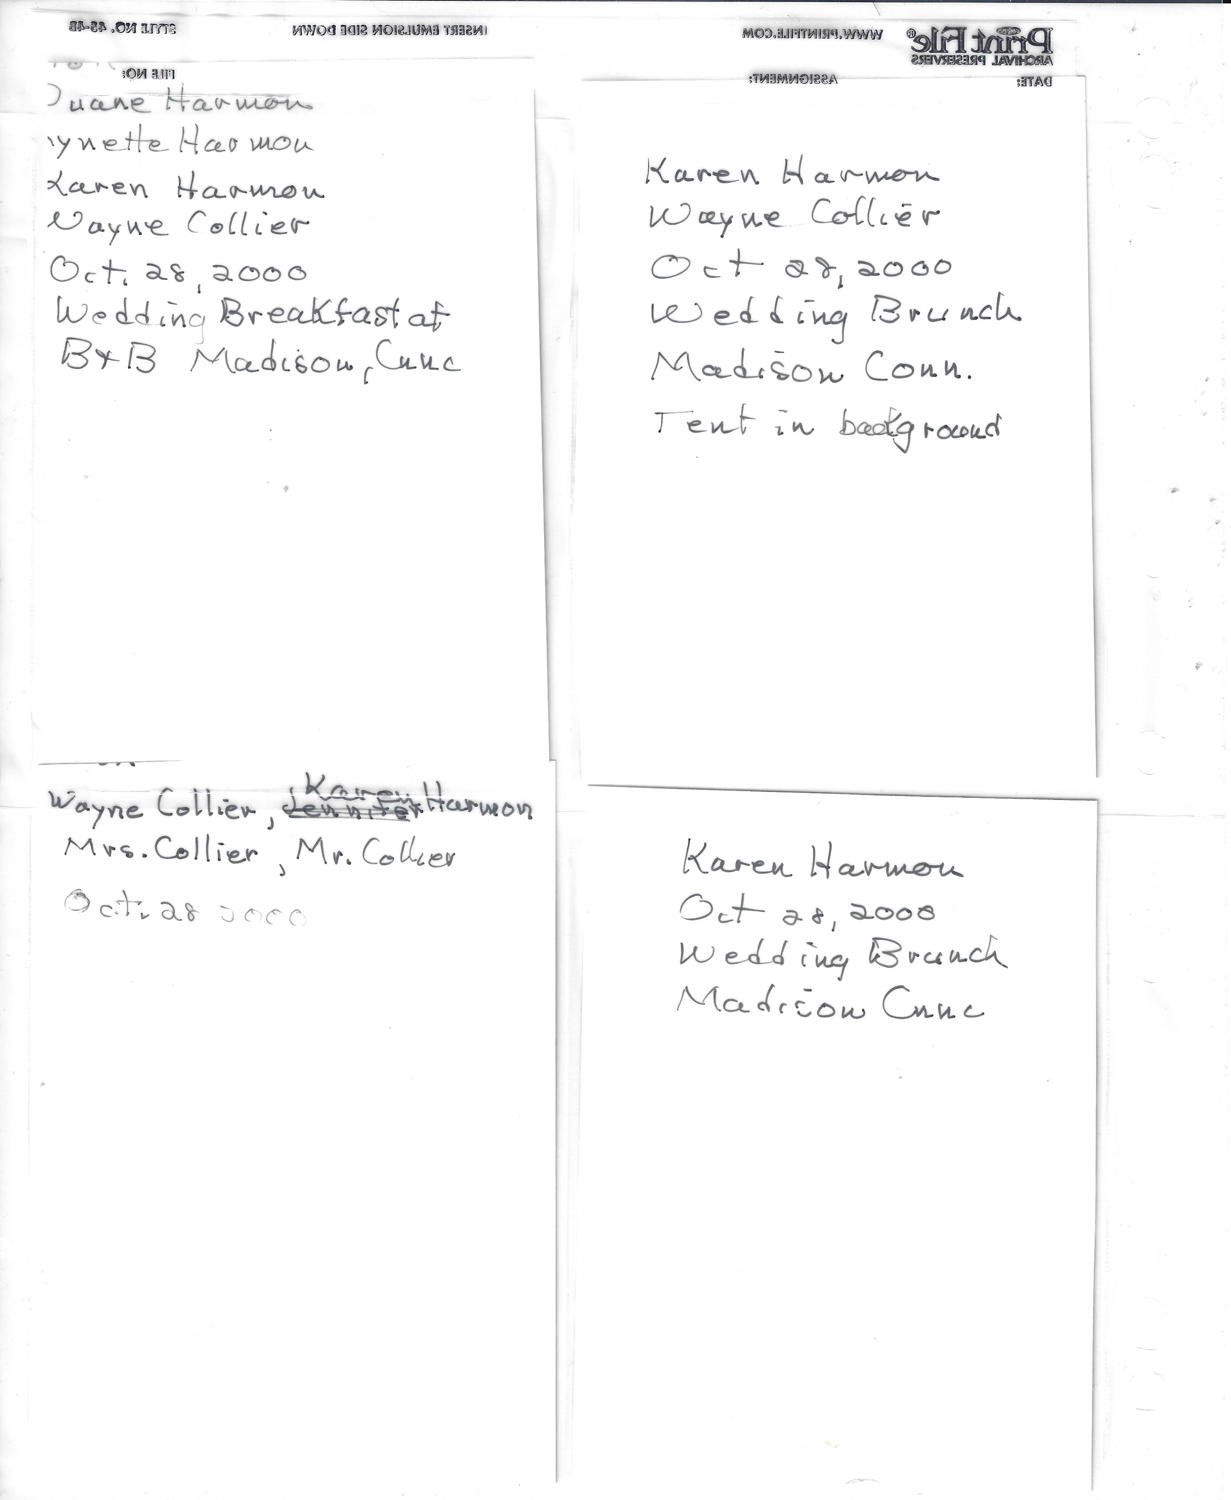 STYLE NO. 45-4B
INSERT EMULSION SIDE DOWN
WWW.PRINTFILE.COM
Print File®
ARCHIVAL PRESERVERS
FILE NO:
ASSIGNMENT:
DATE:
Duane Harmon
ynette Harmon
Karen Harmon
Wayne Collier
Oct. 28, 2000
Wedding Breakfast at
B+B Madison, Cnnc
Karen Harmon
Wayne Collier
Oct 28, 2000
Wedding Brunch
Madison Conn.
Tent in background
Karen
Wayne Collier, Jennifer Harmon
Mrs. Collier, Mr. Collier
Oct. 28 2000
Karen Harmon
Oct 28, 2000
Wedding Brunch
Madison Cnnc